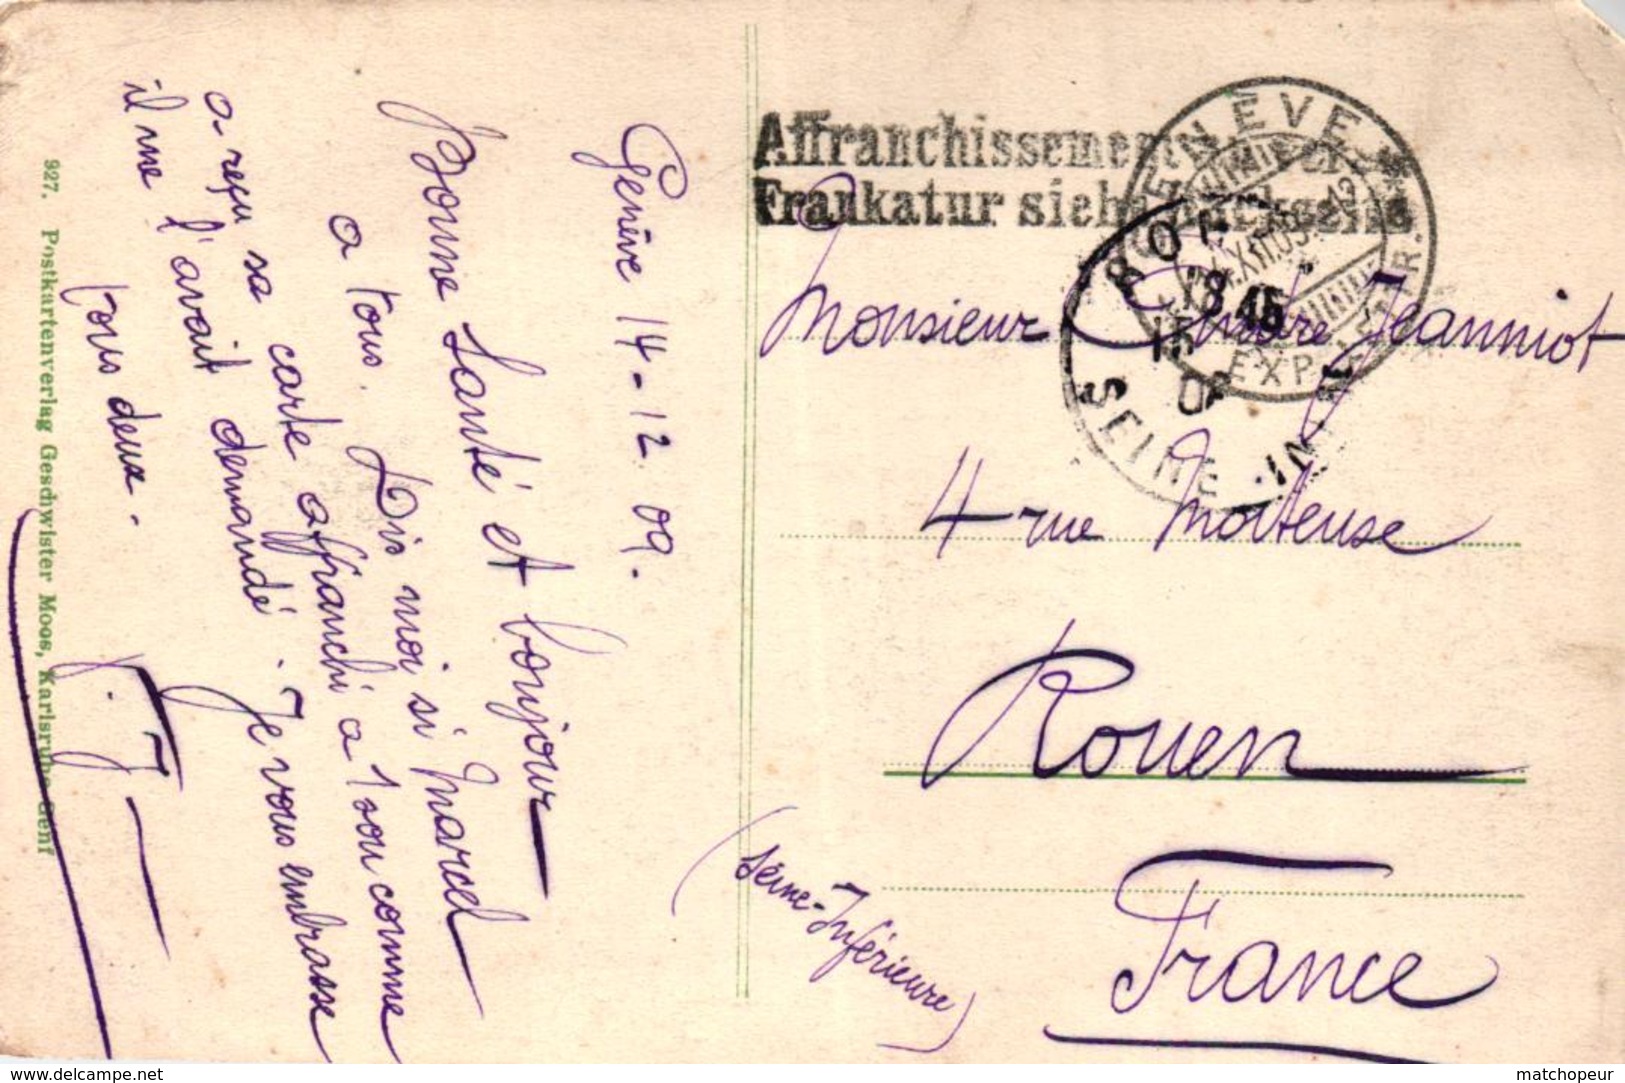 Genève 14-12 09.
Bonne Santé et bonjour
a tous. Dis moi si Marcel
a reçu sa carte affranchi a 1 sou comme
il me l'avait demandé. Je vous embrasse
tous deux.
J. J
927. Postkartenverlag Geschwister Moos, Karlsruhe-Genf
Affranchissement
Frankatur siehe Rückseite
GENÈVE
EXP. LETTR.
ROUEN
18 45
15
SEINE INF
Monsieur Jeanniot
4 rue Morteuse
Rouen
(Seine-Inférieure)
France
delcampe.net
matchopeur